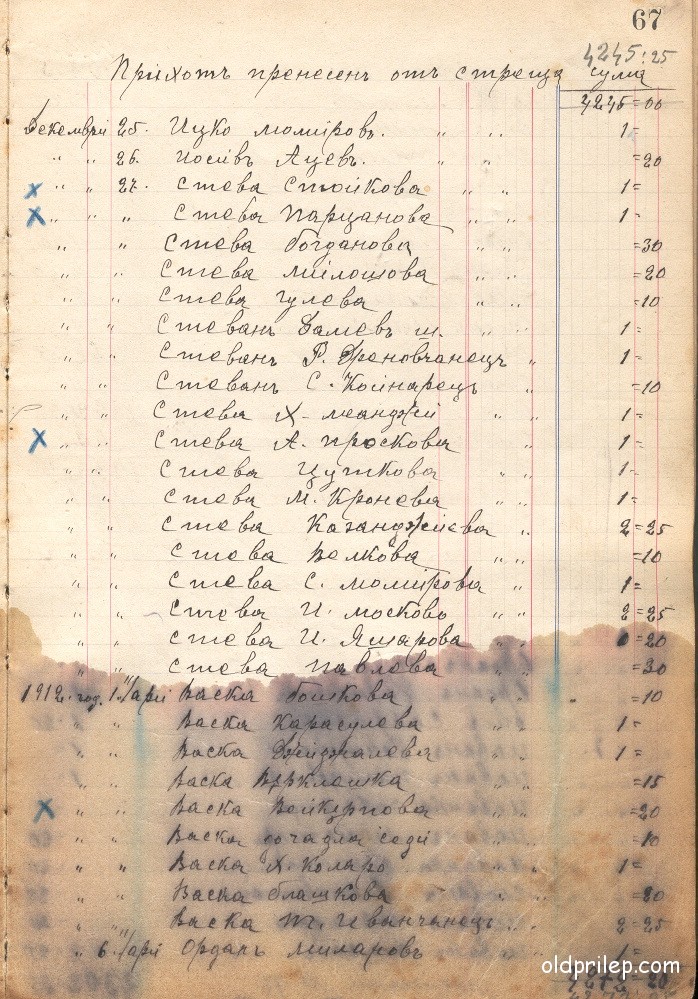 67
4245:25
Приходъ пренесенъ отъ стреща сума
4245=00
Декемврій 25. Ицко Момировъ. " " 1=
" " 26. Иосивъ Ацевъ. " " =20
х " " 27. Стева Стойкова " " 1=
х " " " Стева Парцанова " " 1=
" " Стева Богданова " " =30
" " Стева Милошова " " =20
" " Стева Гулева " " =10
" " Стеванъ Дамевъ ш. " " 1=
" " Стеванъ Р. Дреновчанецъ " 1=
" " Стеванъ С. Койнарецъ " =10
" " Стева Х. Меанджій " " 1=
х " " Стева А. Проскова " " 1=
" " Стева Цуткова " " 1=
" " Стева М. Кронева " " 1=
" " Стева Казанджиева " 2=25
" " Стева Велкова " " =10
" " Стева С. Момирова " 1=
" " Стева И. Москово " " 2=25
" " Стева И. Яшарова " " =20
" " Стева Павлова " =30
1912. год. 1. "/арій Васка Бошкова " " =10
" " Васка Карасулева " 1=
" " Васка Джиджалева " 1=
" " Васка =15
х " " Васка " =20
" " Васка " =10
" " Васка Х. Коларо " 1=
" " Васка Блашкова " " =80
" " Васка Иванчанецъ " 2=25
" 6. "/арій Орданъ Миларовъ " 1=
oldprilep.com